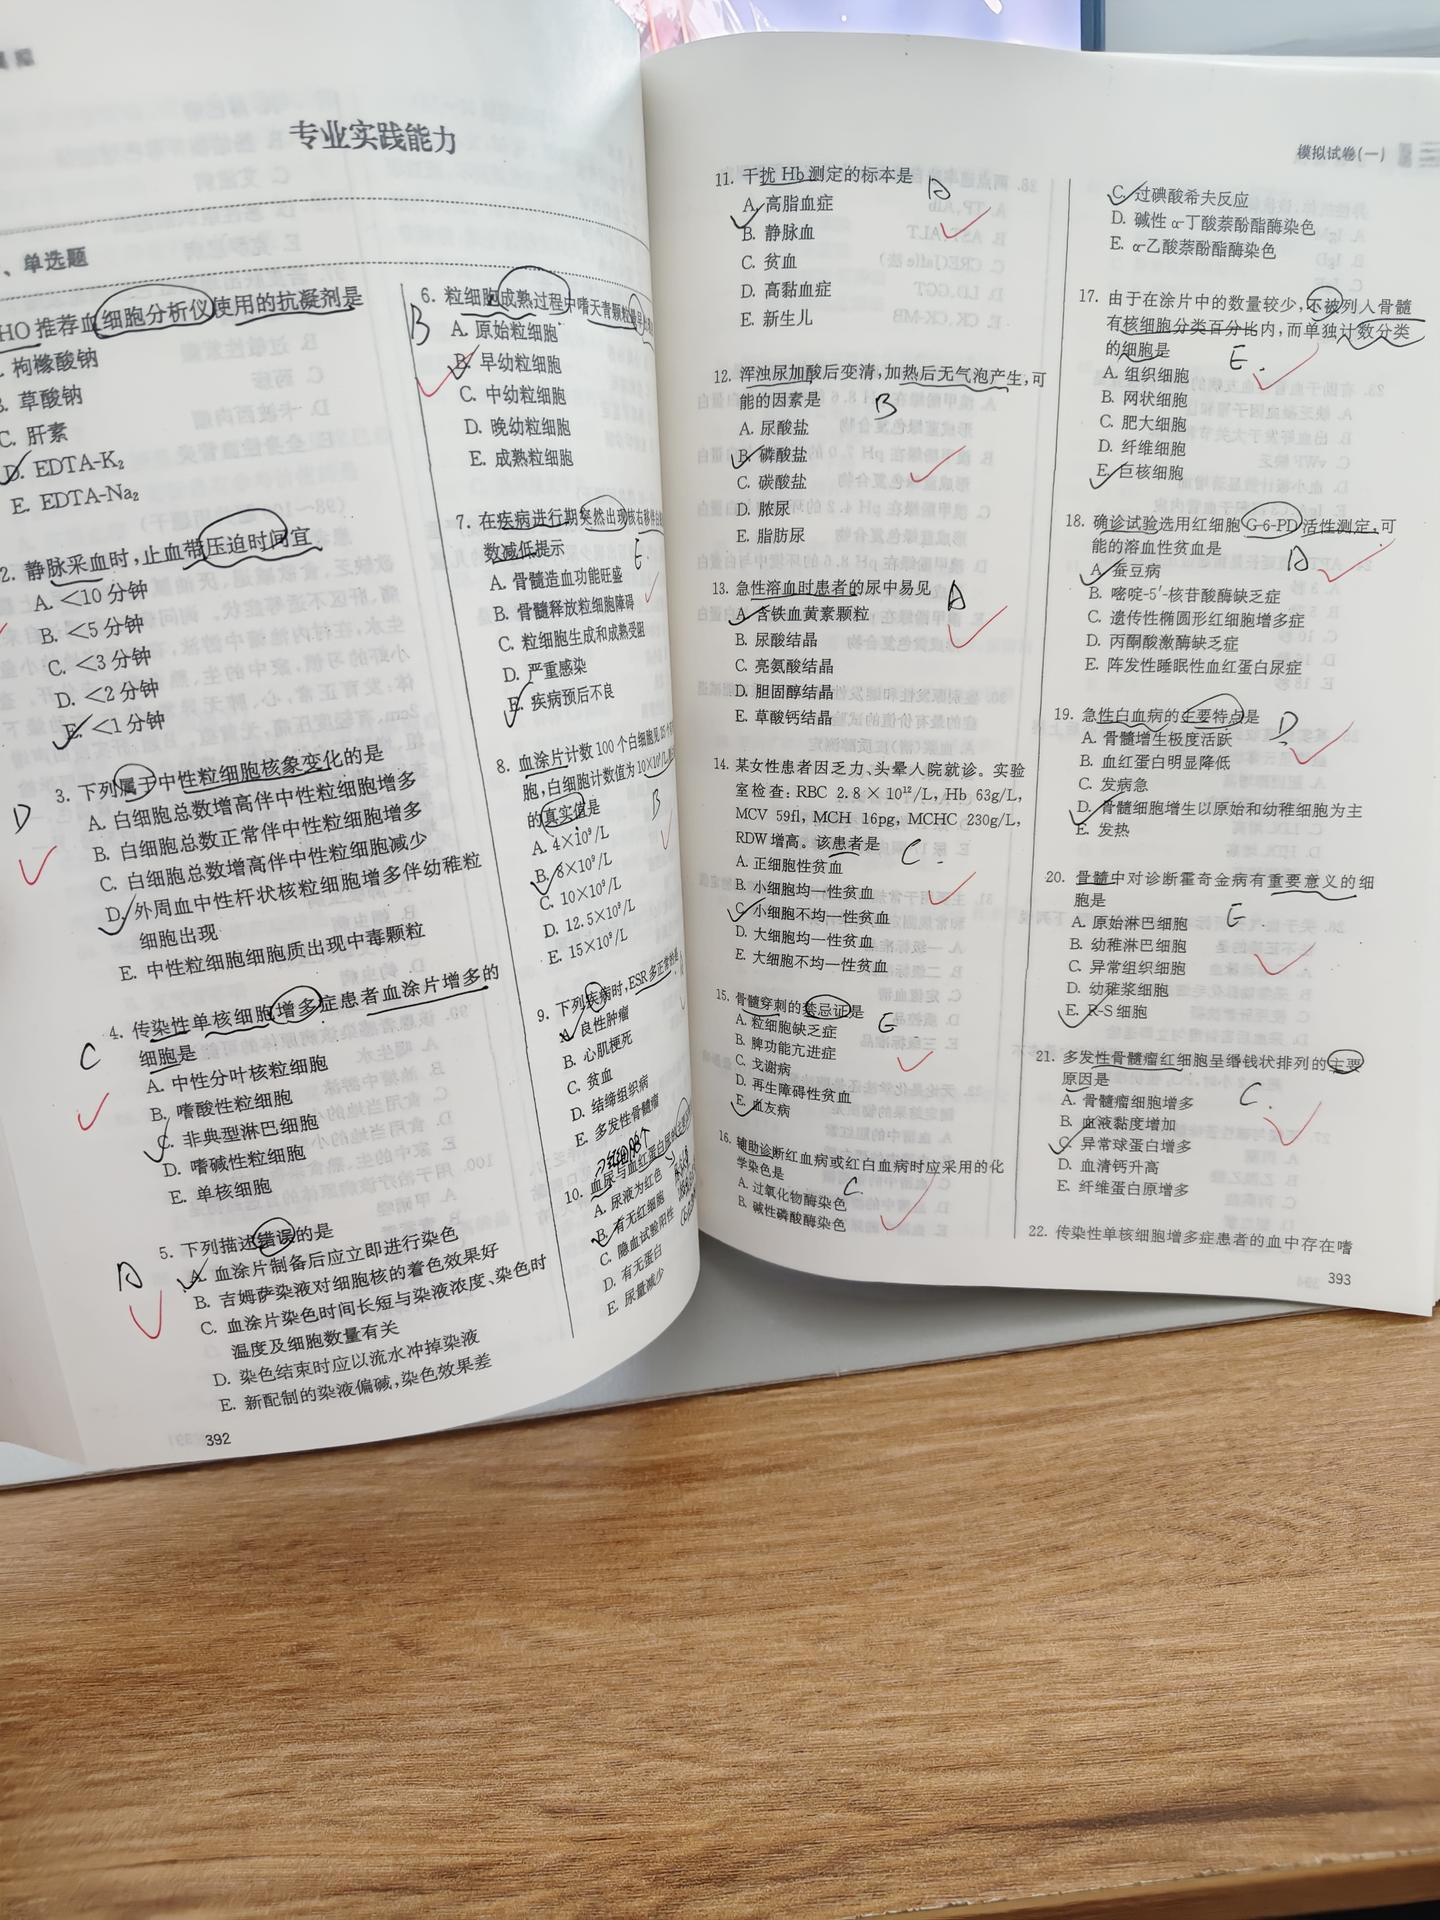 专业实践能力
、单选题
HO 推荐血细胞分析仪使用的抗凝剂是
枸橼酸钠
草酸钠
C. 肝素
D. EDTA-K₂
E. EDTA-Na₂
2. 静脉采血时,止血带压迫时间宜
A. <10 分钟
B. <5 分钟
C. <3 分钟
D. <2 分钟
E. <1 分钟
3. 下列属于中性粒细胞核象变化的是
D
A. 白细胞总数增高伴中性粒细胞增多
B. 白细胞总数正常伴中性粒细胞增多
C. 白细胞总数增高伴中性粒细胞减少
D. 外周血中性杆状核粒细胞增多伴幼稚粒
细胞出现
E. 中性粒细胞细胞质出现中毒颗粒
4. 传染性单核细胞增多症患者血涂片增多的
细胞是
C
A. 中性分叶核粒细胞
B. 嗜酸性粒细胞
C. 非典型淋巴细胞
D. 嗜碱性粒细胞
E. 单核细胞
5. 下列描述错误的是
A
A. 血涂片制备后应立即进行染色
B. 吉姆萨染液对细胞核的着色效果好
C. 血涂片染色时间长短与染液浓度、染色时
温度及细胞数量有关
D. 染色结束时应以流水冲掉染液
E. 新配制的染液偏碱,染色效果差
392
6. 粒细胞成熟过程中嗜天青颗粒
B
A. 原始粒细胞
B. 早幼粒细胞
C. 中幼粒细胞
D. 晚幼粒细胞
E. 成熟粒细胞
7. 在疾病进行期突然出现核右移伴白
数减低提示
E
A. 骨髓造血功能旺盛
B. 骨髓释放粒细胞障碍
C. 粒细胞生成和成熟受阻
D. 严重感染
E. 疾病预后不良
8. 血涂片计数 100 个白细胞见 25 个
胞,白细胞计数值为 10×10⁹/L
的真实值是
B
A. 4×10⁹/L
B. 8×10⁹/L
C. 10×10⁹/L
D. 12.5×10⁹/L
E. 15×10⁹/L
9. 下列疾病时,ESR 多正常的是
A. 良性肿瘤
B. 心肌梗死
C. 贫血
D. 结缔组织病
E. 多发性骨髓瘤
10. 血尿与血红蛋白尿的主要
A. 尿液为红色
B. 有无红细胞
C. 隐血试验阳性
D. 有无蛋白
E. 尿量减少
模拟试卷(一)
11. 干扰 Hb 测定的标本是
A
A. 高脂血症
B. 静脉血
C. 贫血
D. 高黏血症
E. 新生儿
12. 浑浊尿加酸后变清,加热后无气泡产生,可
能的因素是
B
A. 尿酸盐
B. 磷酸盐
C. 碳酸盐
D. 脓尿
E. 脂肪尿
13. 急性溶血时患者的尿中易见
A
A. 含铁血黄素颗粒
B. 尿酸结晶
C. 亮氨酸结晶
D. 胆固醇结晶
E. 草酸钙结晶
14. 某女性患者因乏力、头晕入院就诊。实验
室检查:RBC 2.8×10¹²/L, Hb 63g/L,
MCV 59fl, MCH 16pg, MCHC 230g/L,
RDW 增高。该患者是
C
A. 正细胞性贫血
B. 小细胞均一性贫血
C. 小细胞不均一性贫血
D. 大细胞均一性贫血
E. 大细胞不均一性贫血
15. 骨髓穿刺的禁忌证是
E
A. 粒细胞缺乏症
B. 脾功能亢进症
C. 戈谢病
D. 再生障碍性贫血
E. 血友病
16. 辅助诊断红血病或红白血病时应采用的化
学染色是
C
A. 过氧化物酶染色
B. 碱性磷酸酶染色
C. 过碘酸希夫反应
D. 碱性 α-丁酸萘酚酯酶染色
E. α-乙酸萘酚酯酶染色
17. 由于在涂片中的数量较少,不被列入骨髓
有核细胞分类百分比内,而单独计数分类
的细胞是
E
A. 组织细胞
B. 网状细胞
C. 肥大细胞
D. 纤维细胞
E. 巨核细胞
18. 确诊试验选用红细胞 G-6-PD 活性测定,可
能的溶血性贫血是
A
A. 蚕豆病
B. 嘧啶-5′-核苷酸酶缺乏症
C. 遗传性椭圆形红细胞增多症
D. 丙酮酸激酶缺乏症
E. 阵发性睡眠性血红蛋白尿症
19. 急性白血病的主要特点是
D
A. 骨髓增生极度活跃
B. 血红蛋白明显降低
C. 发病急
D. 骨髓细胞增生以原始和幼稚细胞为主
E. 发热
20. 骨髓中对诊断霍奇金病有重要意义的细
胞是
E
A. 原始淋巴细胞
B. 幼稚淋巴细胞
C. 异常组织细胞
D. 幼稚浆细胞
E. R-S 细胞
21. 多发性骨髓瘤红细胞呈缗钱状排列的主要
原因是
C
A. 骨髓瘤细胞增多
B. 血液黏度增加
C. 异常球蛋白增多
D. 血清钙升高
E. 纤维蛋白原增多
22. 传染性单核细胞增多症患者的血中存在嗜
393